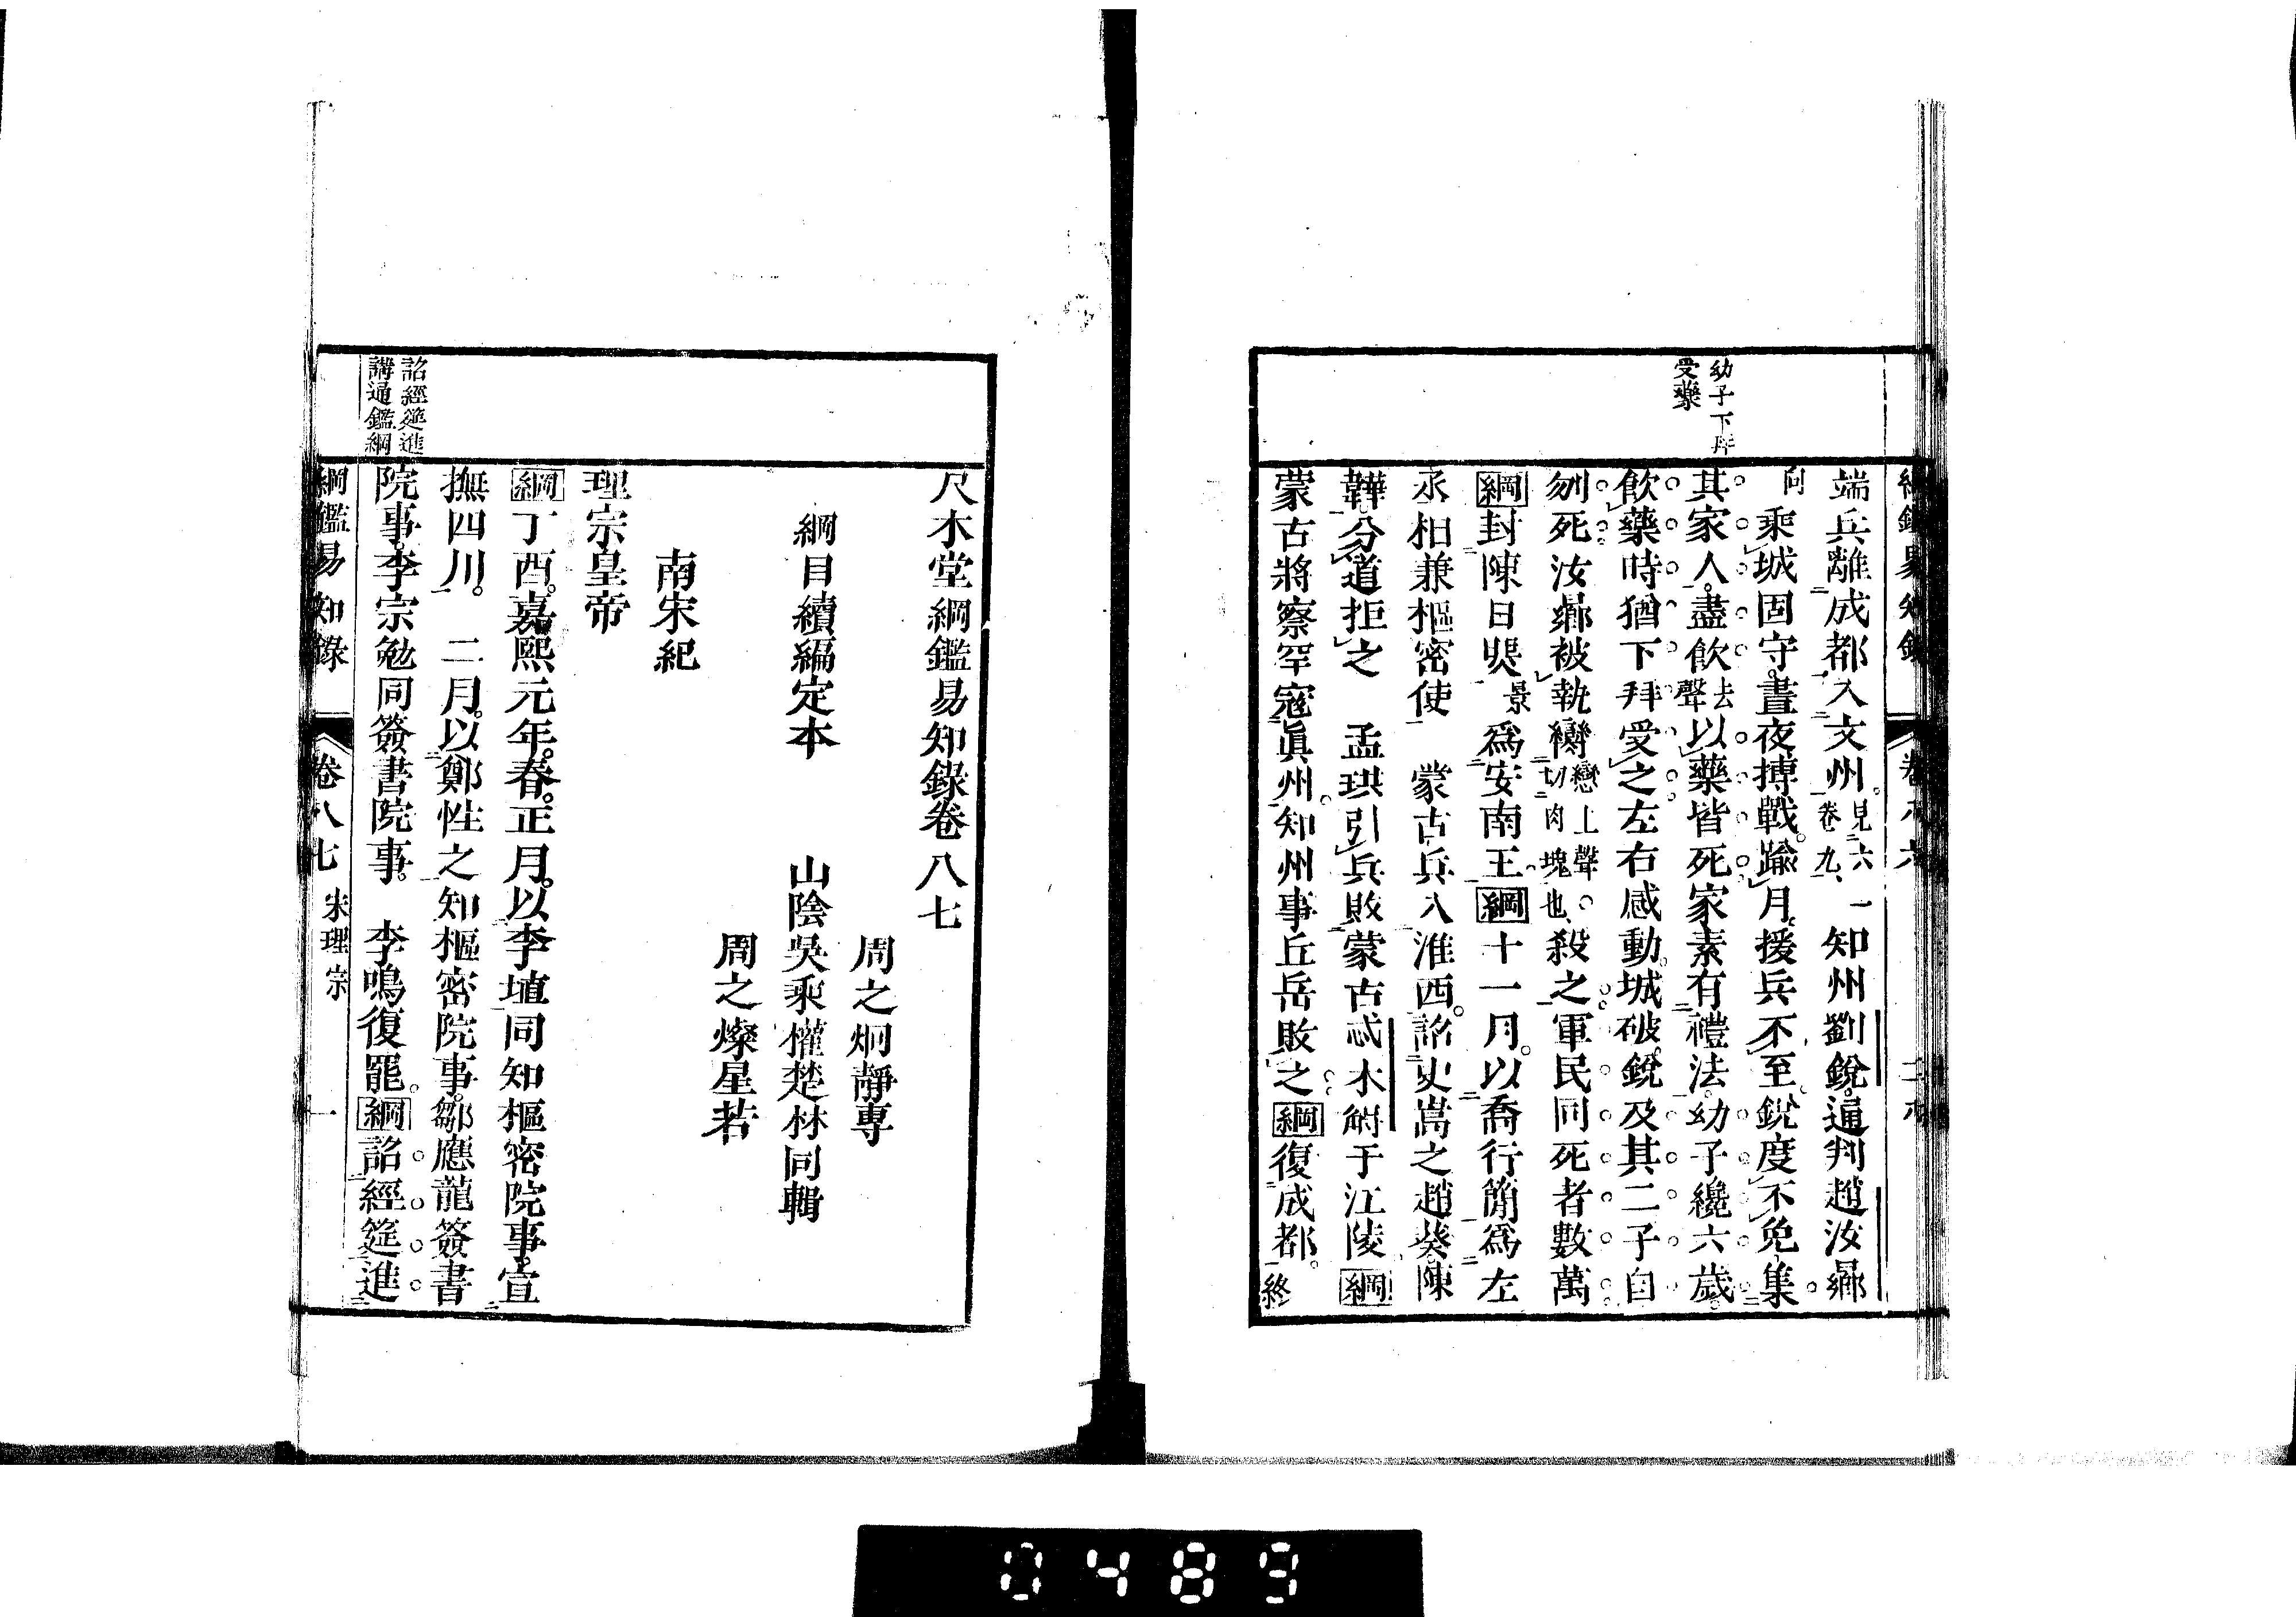 綱鑑易知錄 卷八六
幼子下拜
受藥
端兵離成都入文州。見六卷九、一知州劉銳。通判趙汝曏
向乘城固守。晝夜搏戰。踰月。援兵不至。銳度不免。集
其家人。盡飲去聲以藥皆死家素有禮法。幼子纔六歲。
飲藥時猶下拜受之左右感動。城破。銳及其二子自
刎死汝曏被執臠臠上聲。切肉塊也、殺之軍民同死者數萬
綱封陳日煚景爲安南王綱十一月。以喬行簡爲左
丞相兼樞密使 蒙古兵入淮西。詔史嵩之趙葵。陳
韡分道拒之 孟珙引兵敗蒙古忒木䚟于江陵綱
蒙古將察罕寇眞州。知州事丘岳敗之綱復成都。終
尺木堂綱鑑易知錄卷八七
周之炯靜專
綱目續編定本 山陰吳乘權楚材同輯
周之燦星若
南宋紀
理宗皇帝
綱丁酉。嘉熙元年。春。正月。以李埴同知樞密院事。宣
撫四川。 二月。以鄭性之知樞密院事。鄒應龍簽書
院事。李宗勉同簽書院事。 李鳴復罷。綱詔經筵進
詔經筵進
講通鑑綱
綱鑑易知錄 卷八七 宋理宗 一
0489